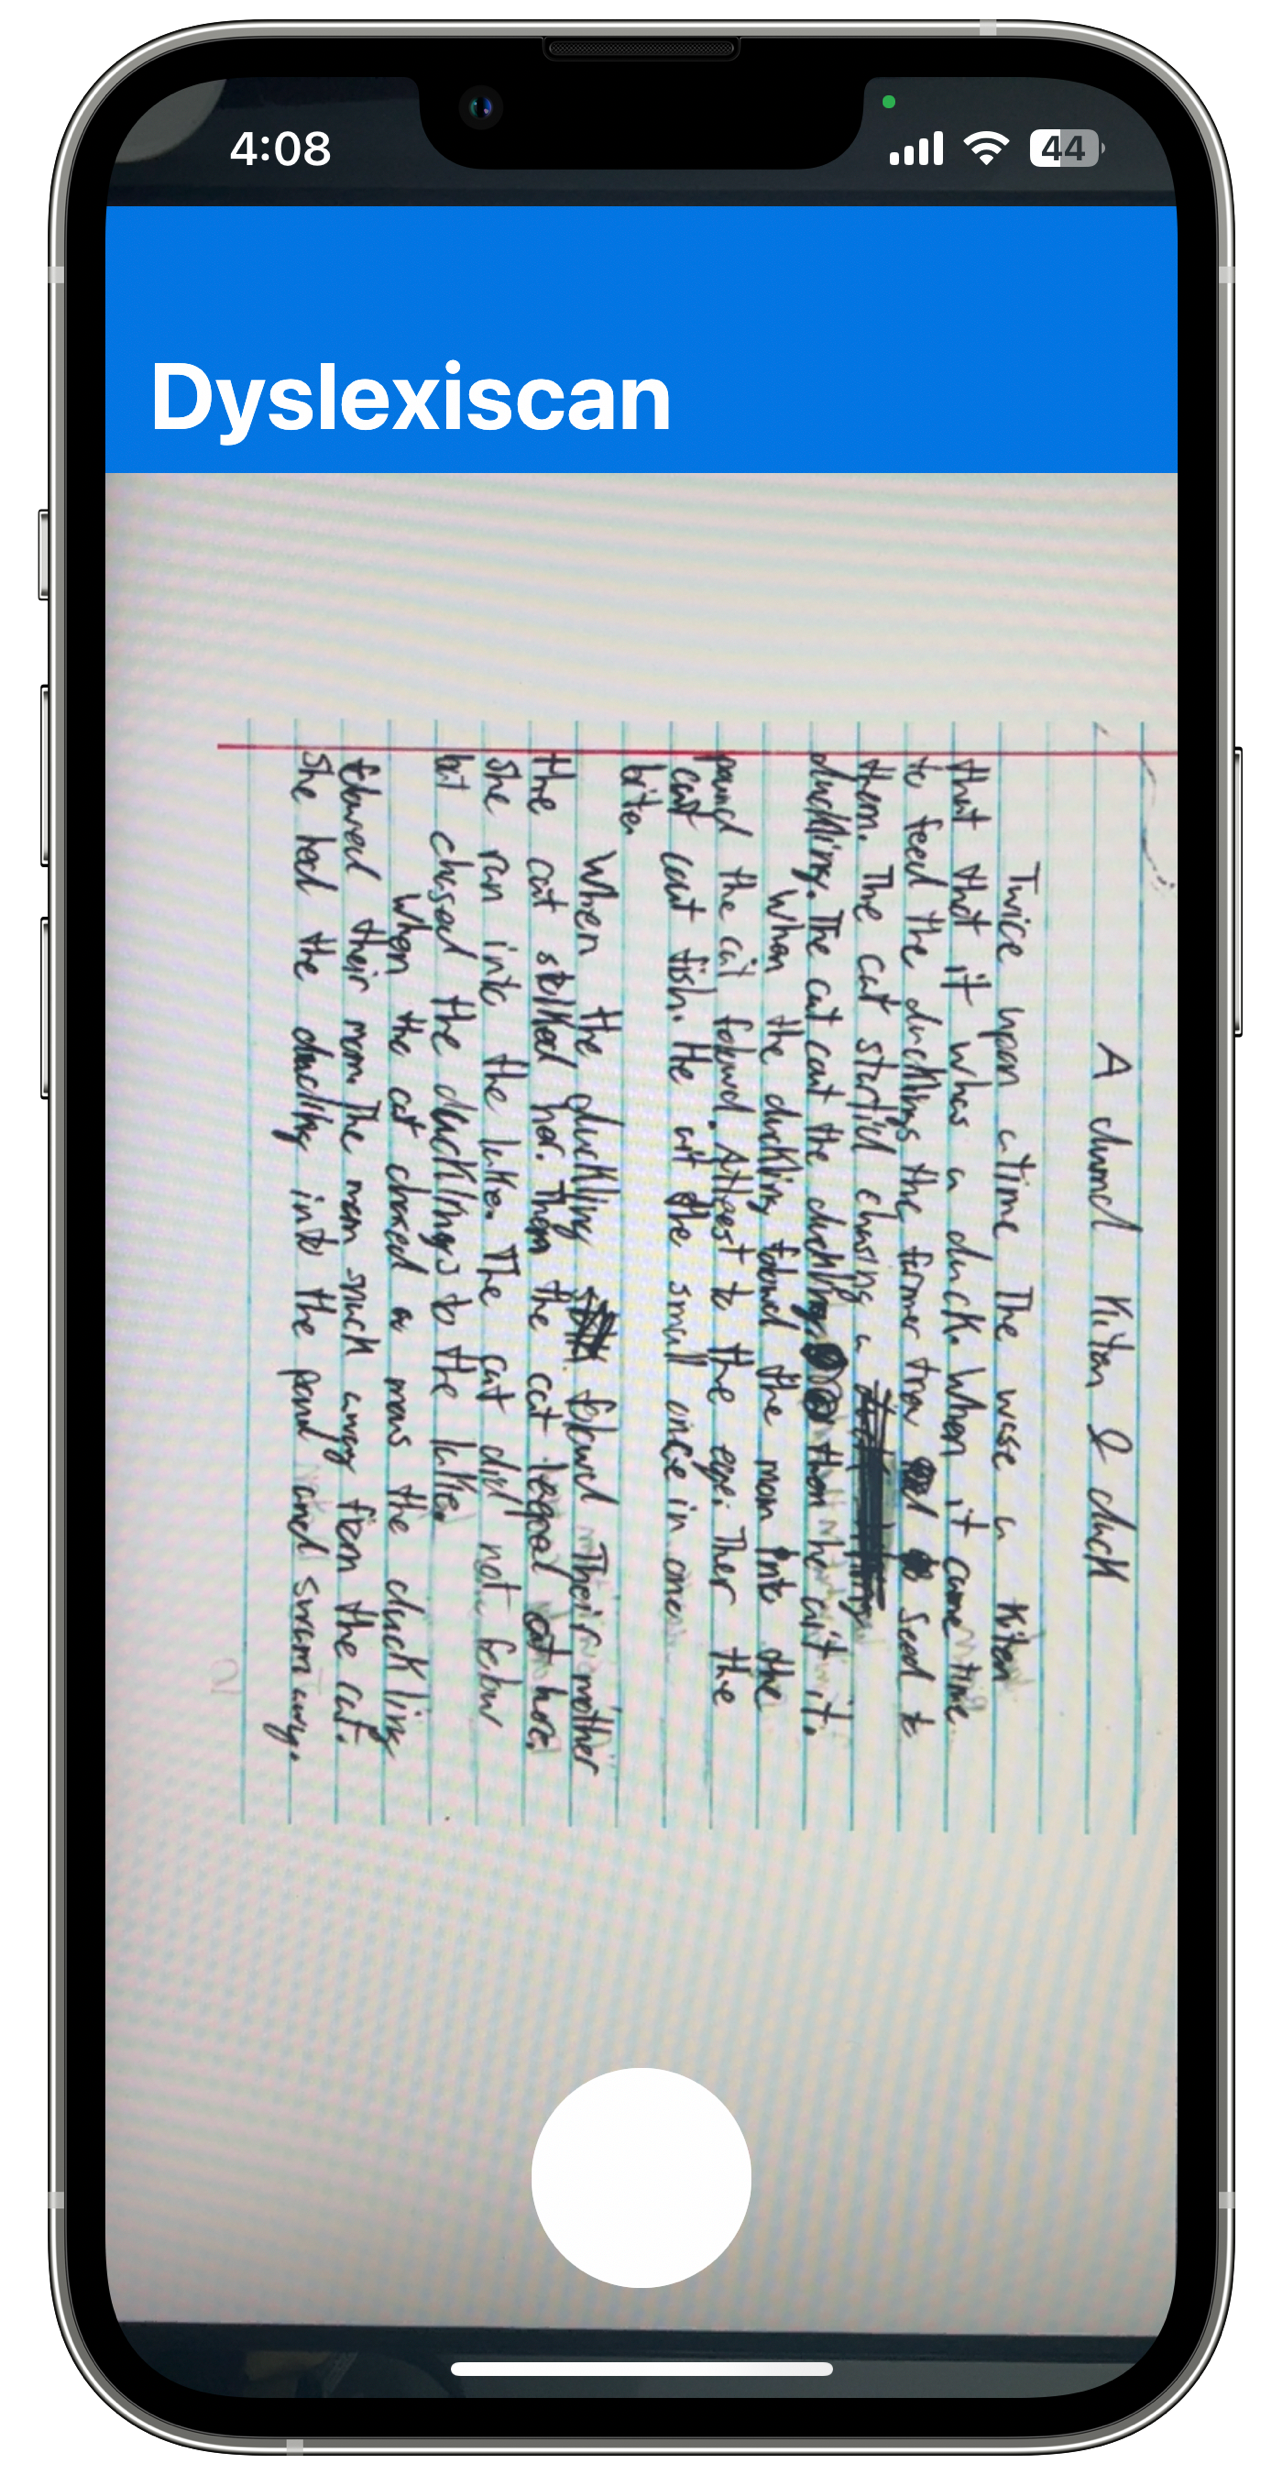 4:08
44
Dyslexiscan
A Kiten & duck
Twice upon a time The wase a Kiten
that that it whas a duck. When it came time
to feed the ducklings the farmer trow seed to
them. The cat start'd chasing a
duckling. The cat caut the duckling. then he ait it.
When the duckling folowd the mom into the
pound the cat folowd. Atleest to the ege. Ther the
cat caut fish. He ait the small once in one
bite.
When the duckling folowd Their mother
the cat stlked her. Then the cat leepd at here.
She ran into the lake. The cat did not folow
bit chased the ducklings to the lake.
When the cat chased a mows the duckling
folowed their mom. The mom snuck away from the cat.
She led the duckling into the pond and swam away.